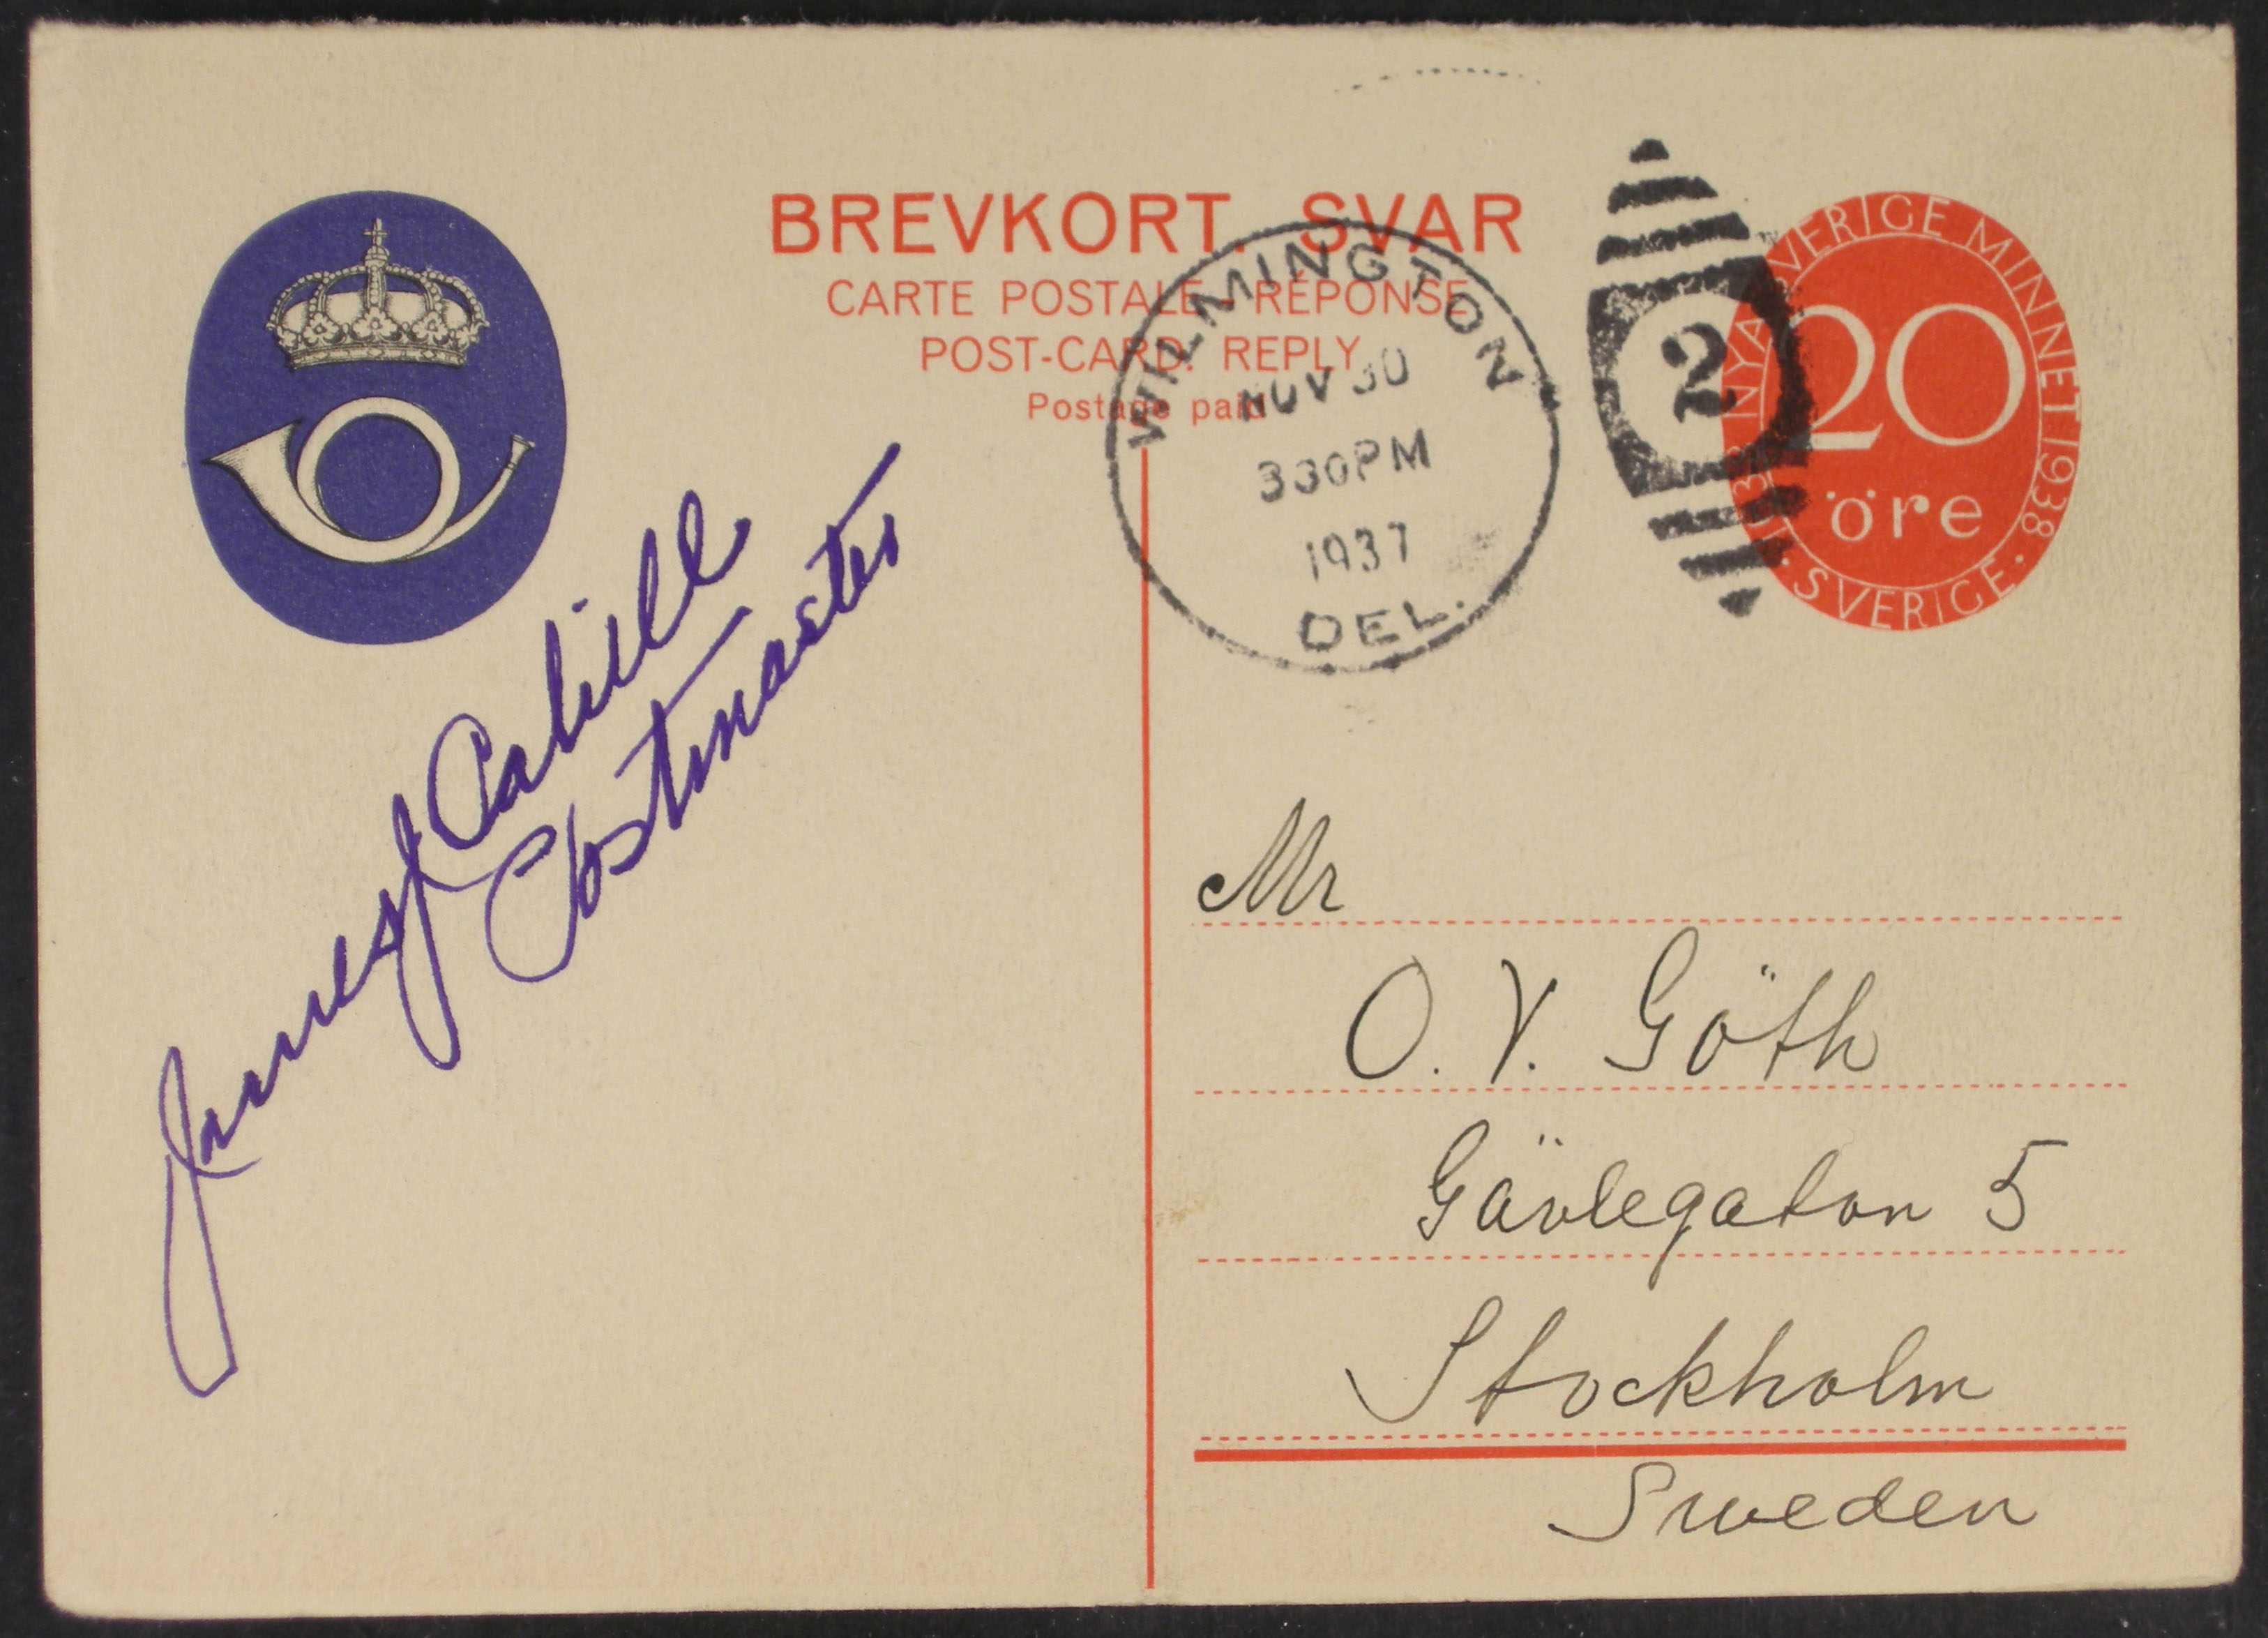 BREVKORT. SVAR
CARTE POSTALE. RÉPONSE
POST-CARD. REPLY
Postage paid
WILMINGTON
NOV 30
330PM
1937
DEL.
2
1638 NYA SVERIGE MINNET 1938 · SVERIGE ·
20
öre
James J Cahill
Postmaster
Mr
O. V. Göth
Gävlegatan 5
Stockholm
Sweden